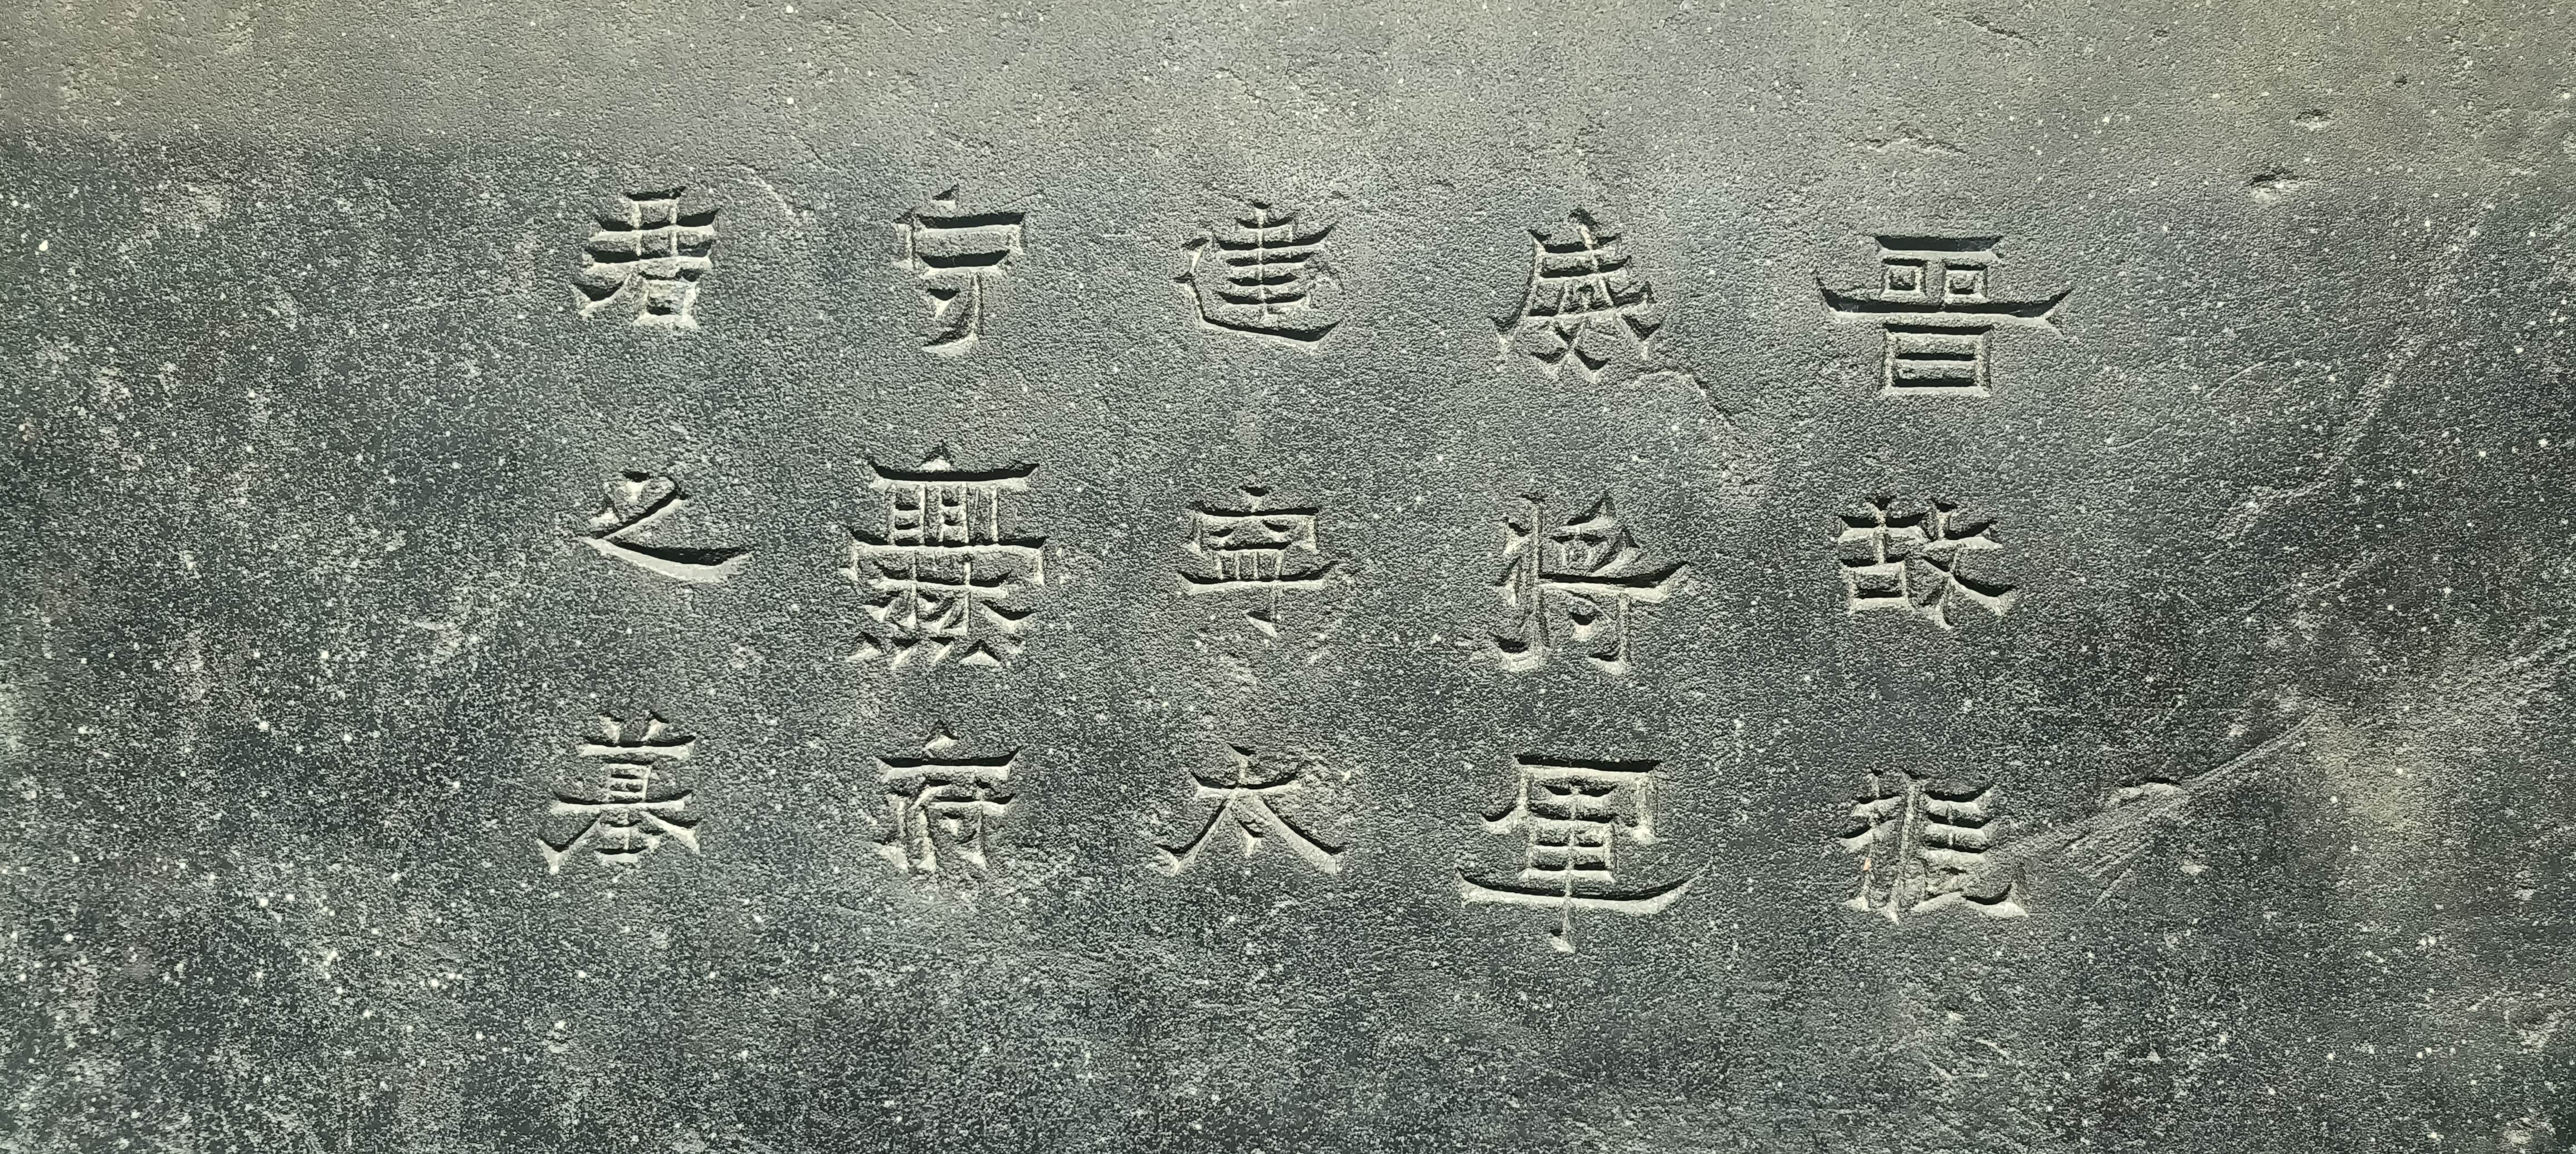 晉故振
威將軍
建寧太
守爨府
君之墓